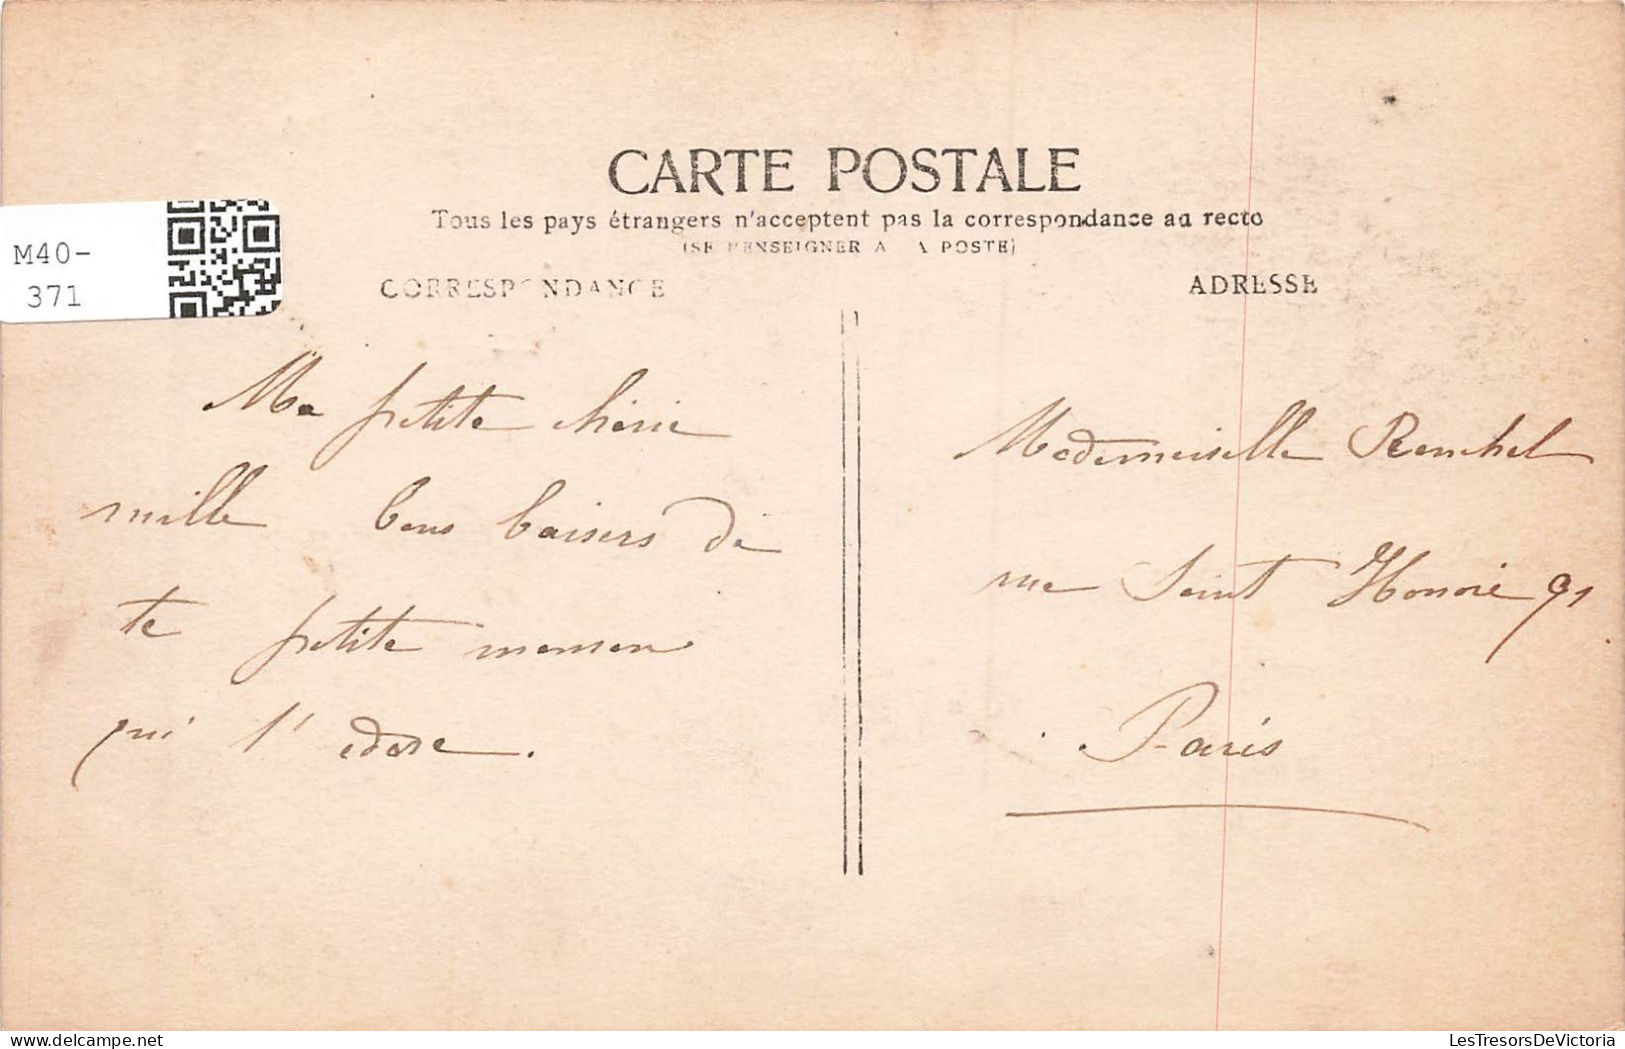 CARTE POSTALE
Tous les pays étrangers n'acceptent pas la correspondance au recto
(SE RENSEIGNER A LA POSTE)
M40-
371
CORRESPONDANCE
ADRESSE
Ma petite chérie
mille bons baisers de
te petite maman
qui t'adore.
Mademoiselle
rue Saint Honoré 91
Paris
LesTresorsDeVictoria